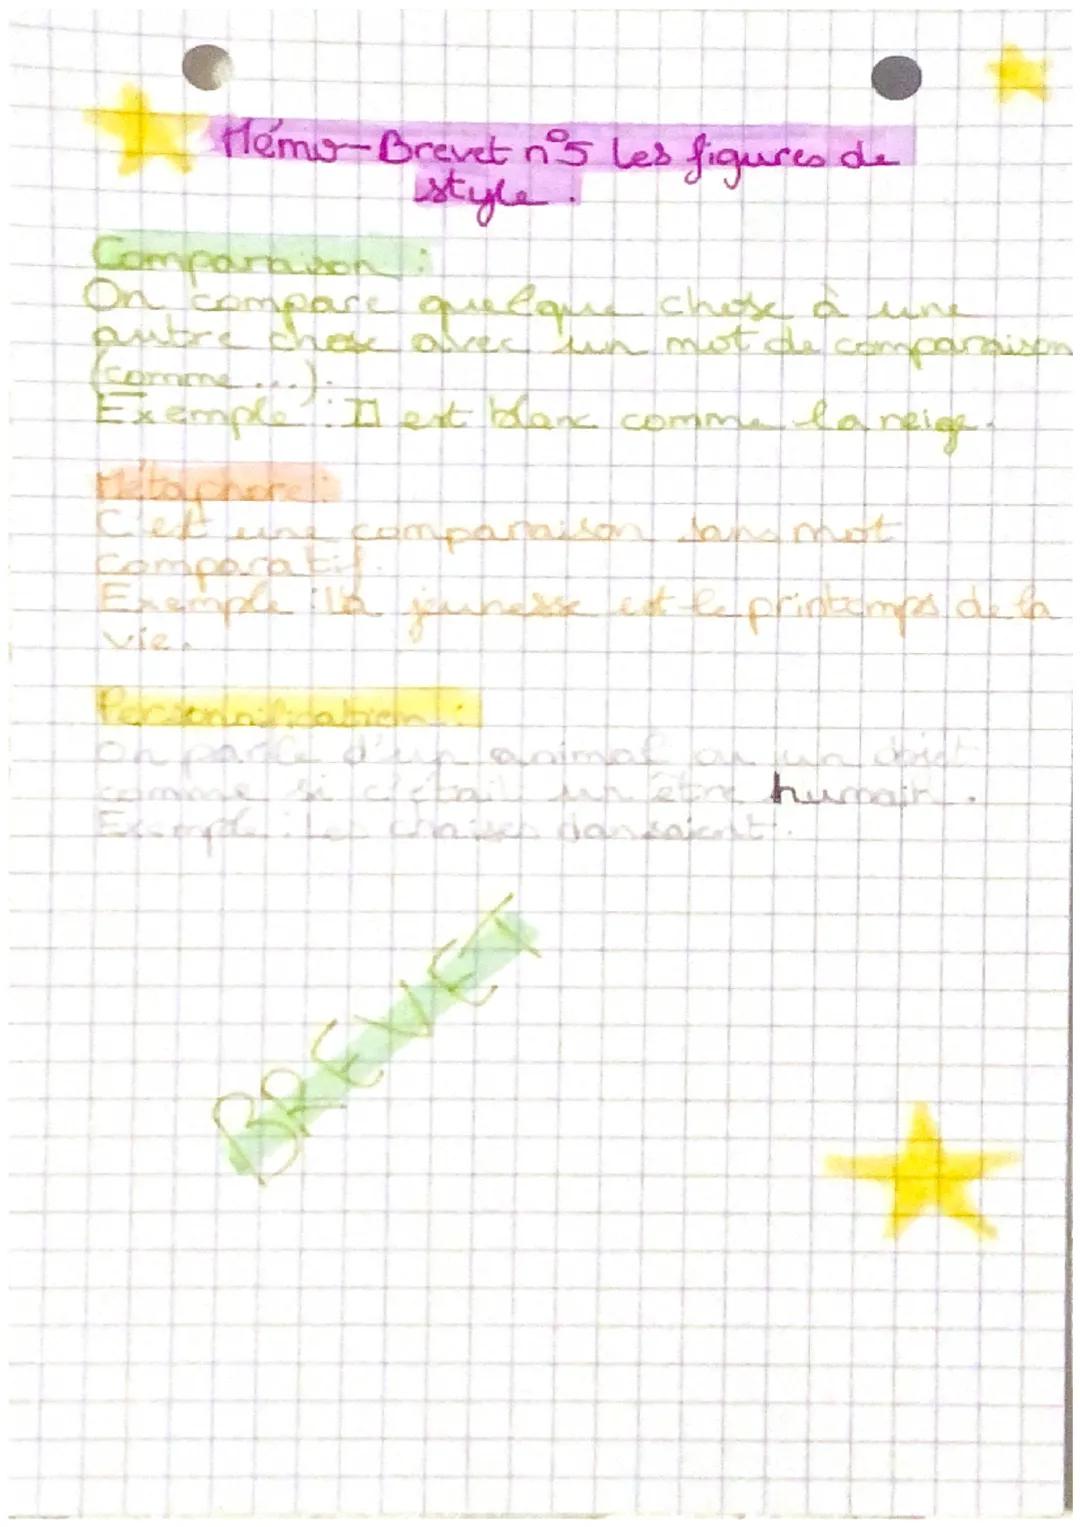 Mémo-Brevet n°5 les figures de
style.
Comparaison :
On compare quelque chose à une
autre chose avec un mot de comparaison
(comme...).
Exemple : Il est blanc comme la neige.
Métaphore :
C'est une comparaison sans mot
comparatif.
Exemple : la jeunesse est le printemps de la
vie.
Personnification :
On parle d'un animal ou un objet
comme si c'était un être humain.
Exemple : Les chaises dansaient.
BREVET